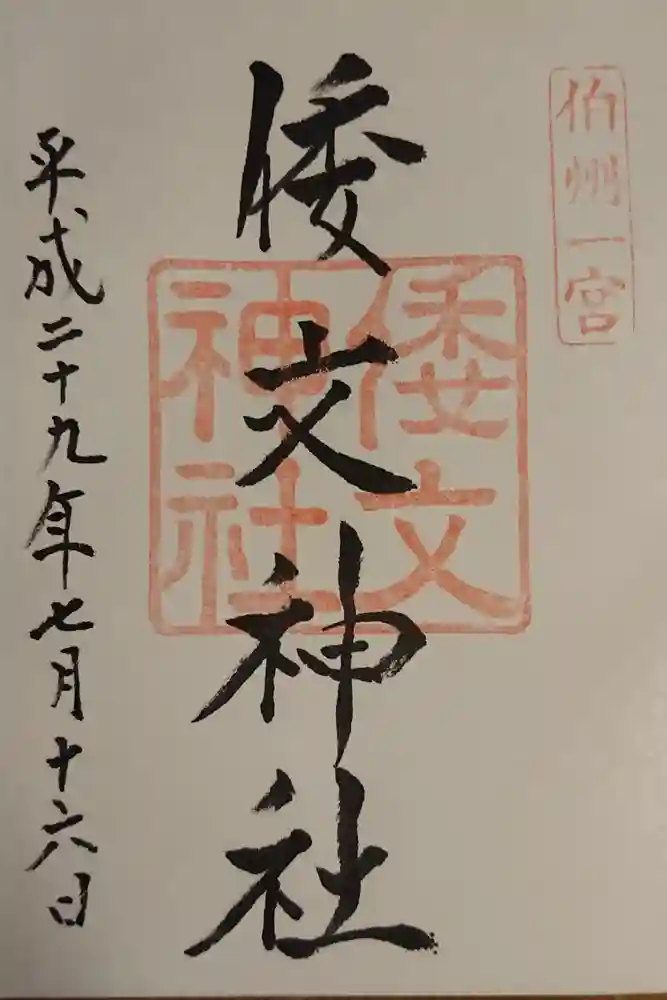 伯州一宮
倭文神社
倭文
神社
平成二十九年七月十六日